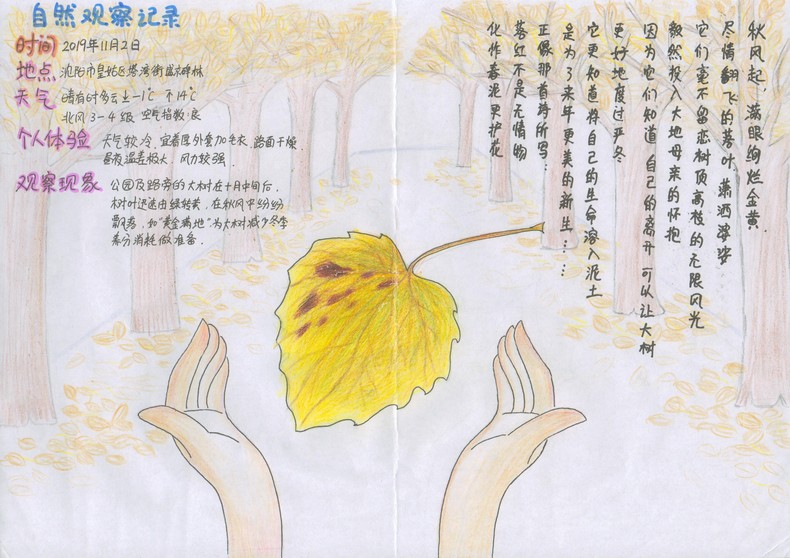 自然观察记录
时间 2019年11月2日
地点 沈阳市皇姑区塔湾街
天气 晴有时多云 -1℃ 14℃
北风3-4级 空气指数:良
个人体验 天气较冷,宜着厚外套加毛衣,路面干燥,
昼夜温差极大,风力较强.
观察现象 公园及路旁的大树在十月中旬后,
树叶迅速由绿转黄,在秋风中纷纷
飘落,如“黄金满地”为大树减少冬季
养分消耗做准备.
秋风起,满眼绚烂金黄.
尽情翻飞的落叶 潇洒婆娑
它们毫不留恋树顶高枝的无限风光
毅然投入大地母亲的怀抱
因为它们知道 自己的离开 可以让大树
更好地度过严冬
它更知道将自己的生命溶入泥土
是为了来年更美的新生……
正像那首诗所写:
落红不是无情物
化作春泥更护花